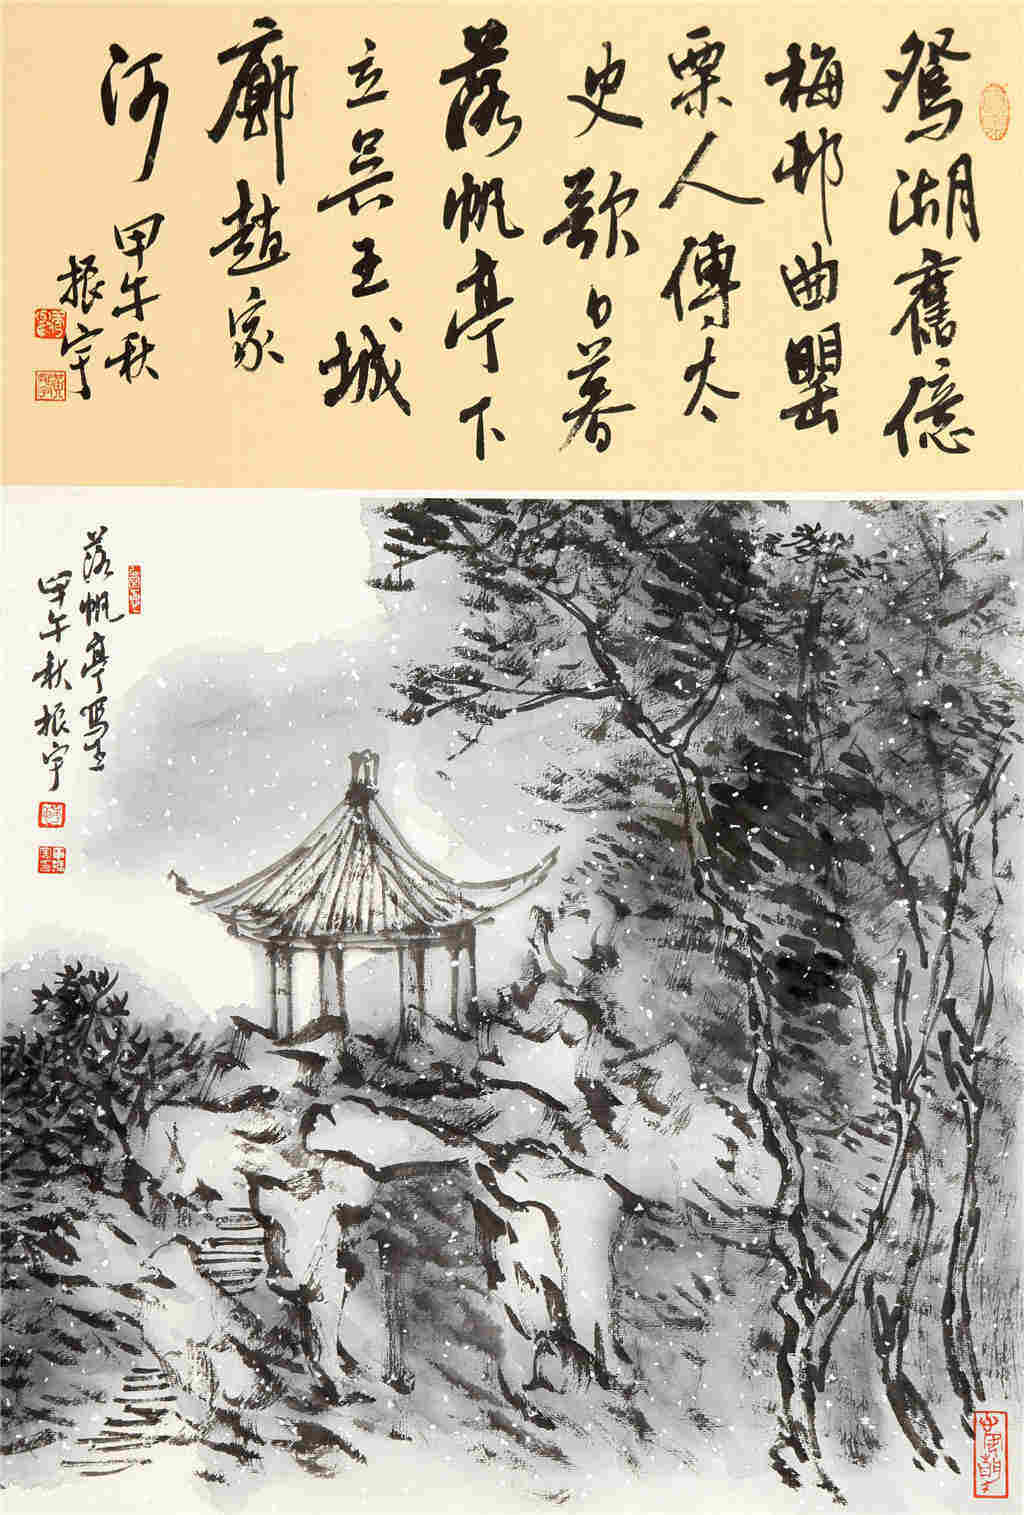 鴛湖舊憶
梅邨曲罌
粟人傳太
史歌日暮
落帆亭下
立吳王城
廓趙家
河 甲午秋
振宇
落帆亭寫生
甲午秋振宇